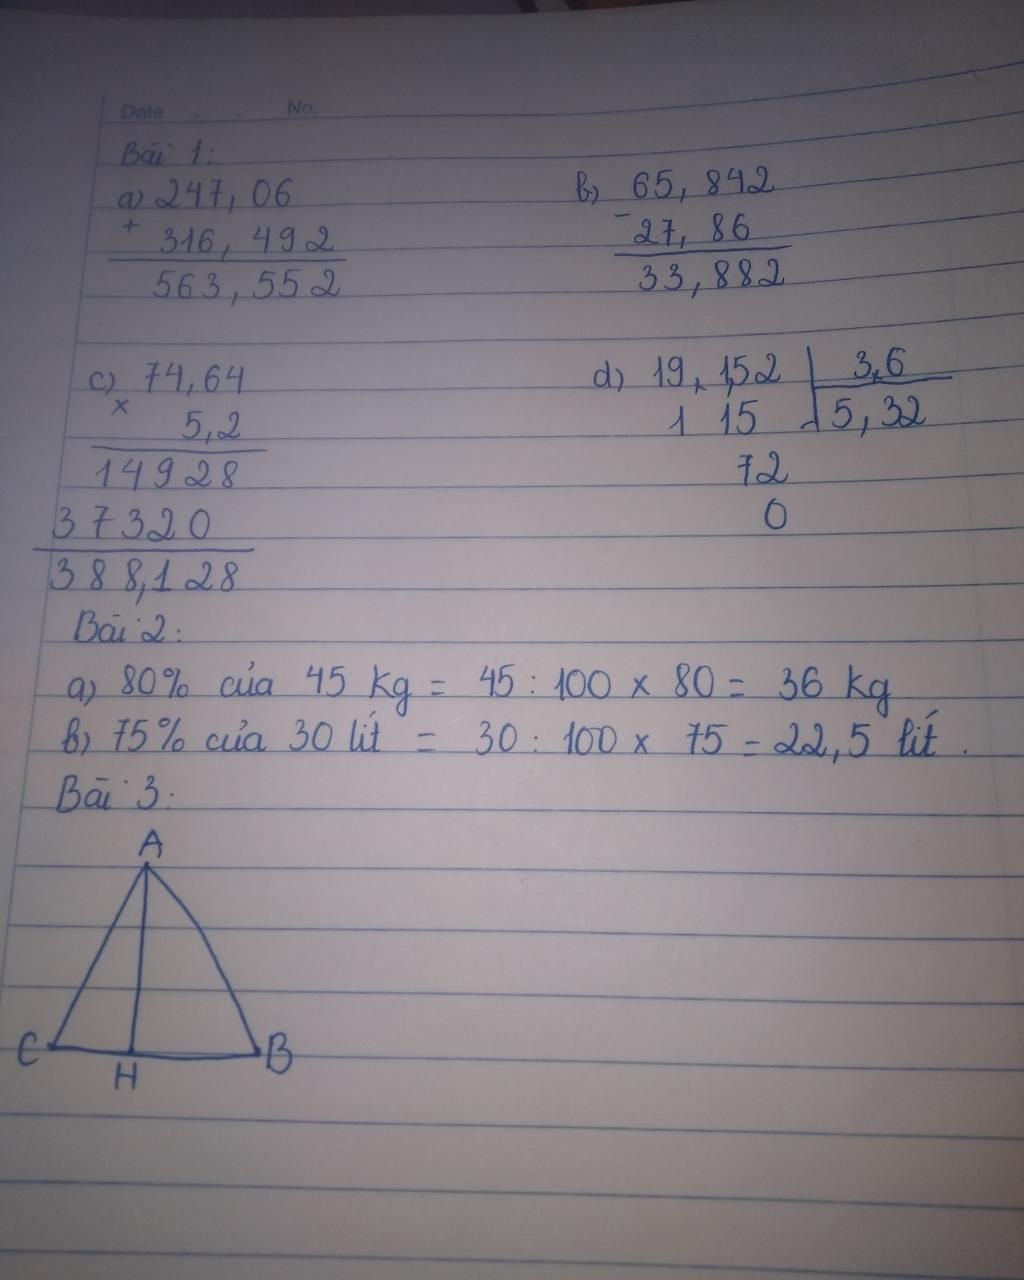 Date . . No.
Bài 1:
a) 247,06
+ 316,492
563,552
b) 65,842
- 27,86
33,882
c) 74,64
x 5,2
14928
37320
388,128
d) 19,152 3,6
1 15 5,32
72
0
Bài 2:
a) 80% của 45 kg = 45 : 100 x 80 = 36 kg
b) 75% của 30 lít = 30 : 100 x 75 = 22,5 lít.
Bài 3:
A
C H B